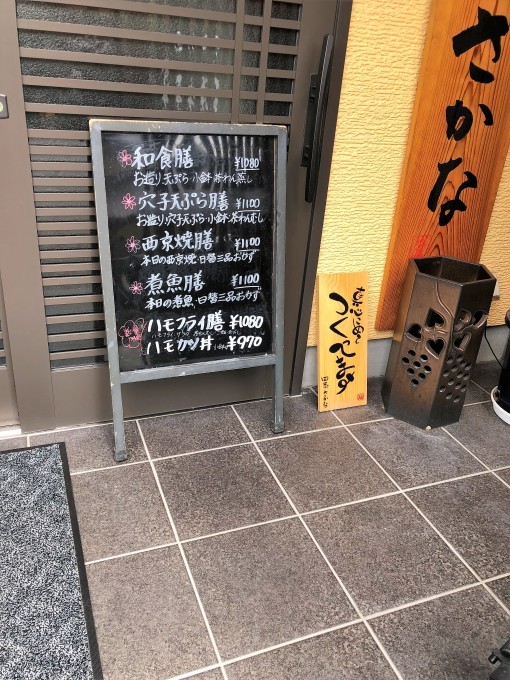 和食膳 ¥1080
お造り 天ぷら 小鉢 茶わん蒸し
穴子天ぷら膳 ¥1100
お造り・穴子天ぷら・小鉢・茶わんむし
西京焼膳 ¥1100
本日の西京焼・日替三品おかず
煮魚膳 ¥1100
本日の煮魚・日替三品おかず
ハモフライ膳 ¥1080
ハモカツ丼 ¥970
さかな
つくってます